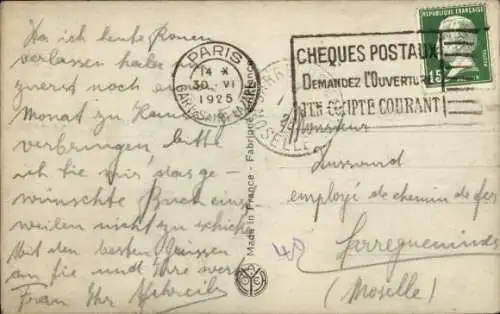 Da ich heute Rouen
verlassen habe
zuerst noch
Monat zu
verbringen, bitte
ich Sie mir das ge-
wünschte Buch einst-
weilen nicht zu schicken
Mit den besten Grüssen
an Sie und Ihre werte
Frau Ihr
PARIS
14 *
30 VI
1925
GARE ST LAZARE
MOSELLE
Made in France - Fabriqué en France
REPUBLIQUE FRANÇAISE
15
CHEQUES POSTAUX
DEMANDEZ L'OUVERTURE
D'UN COMPTE COURANT
Monsieur
employé de chemin de fer
Sarreguemines
(Moselle)